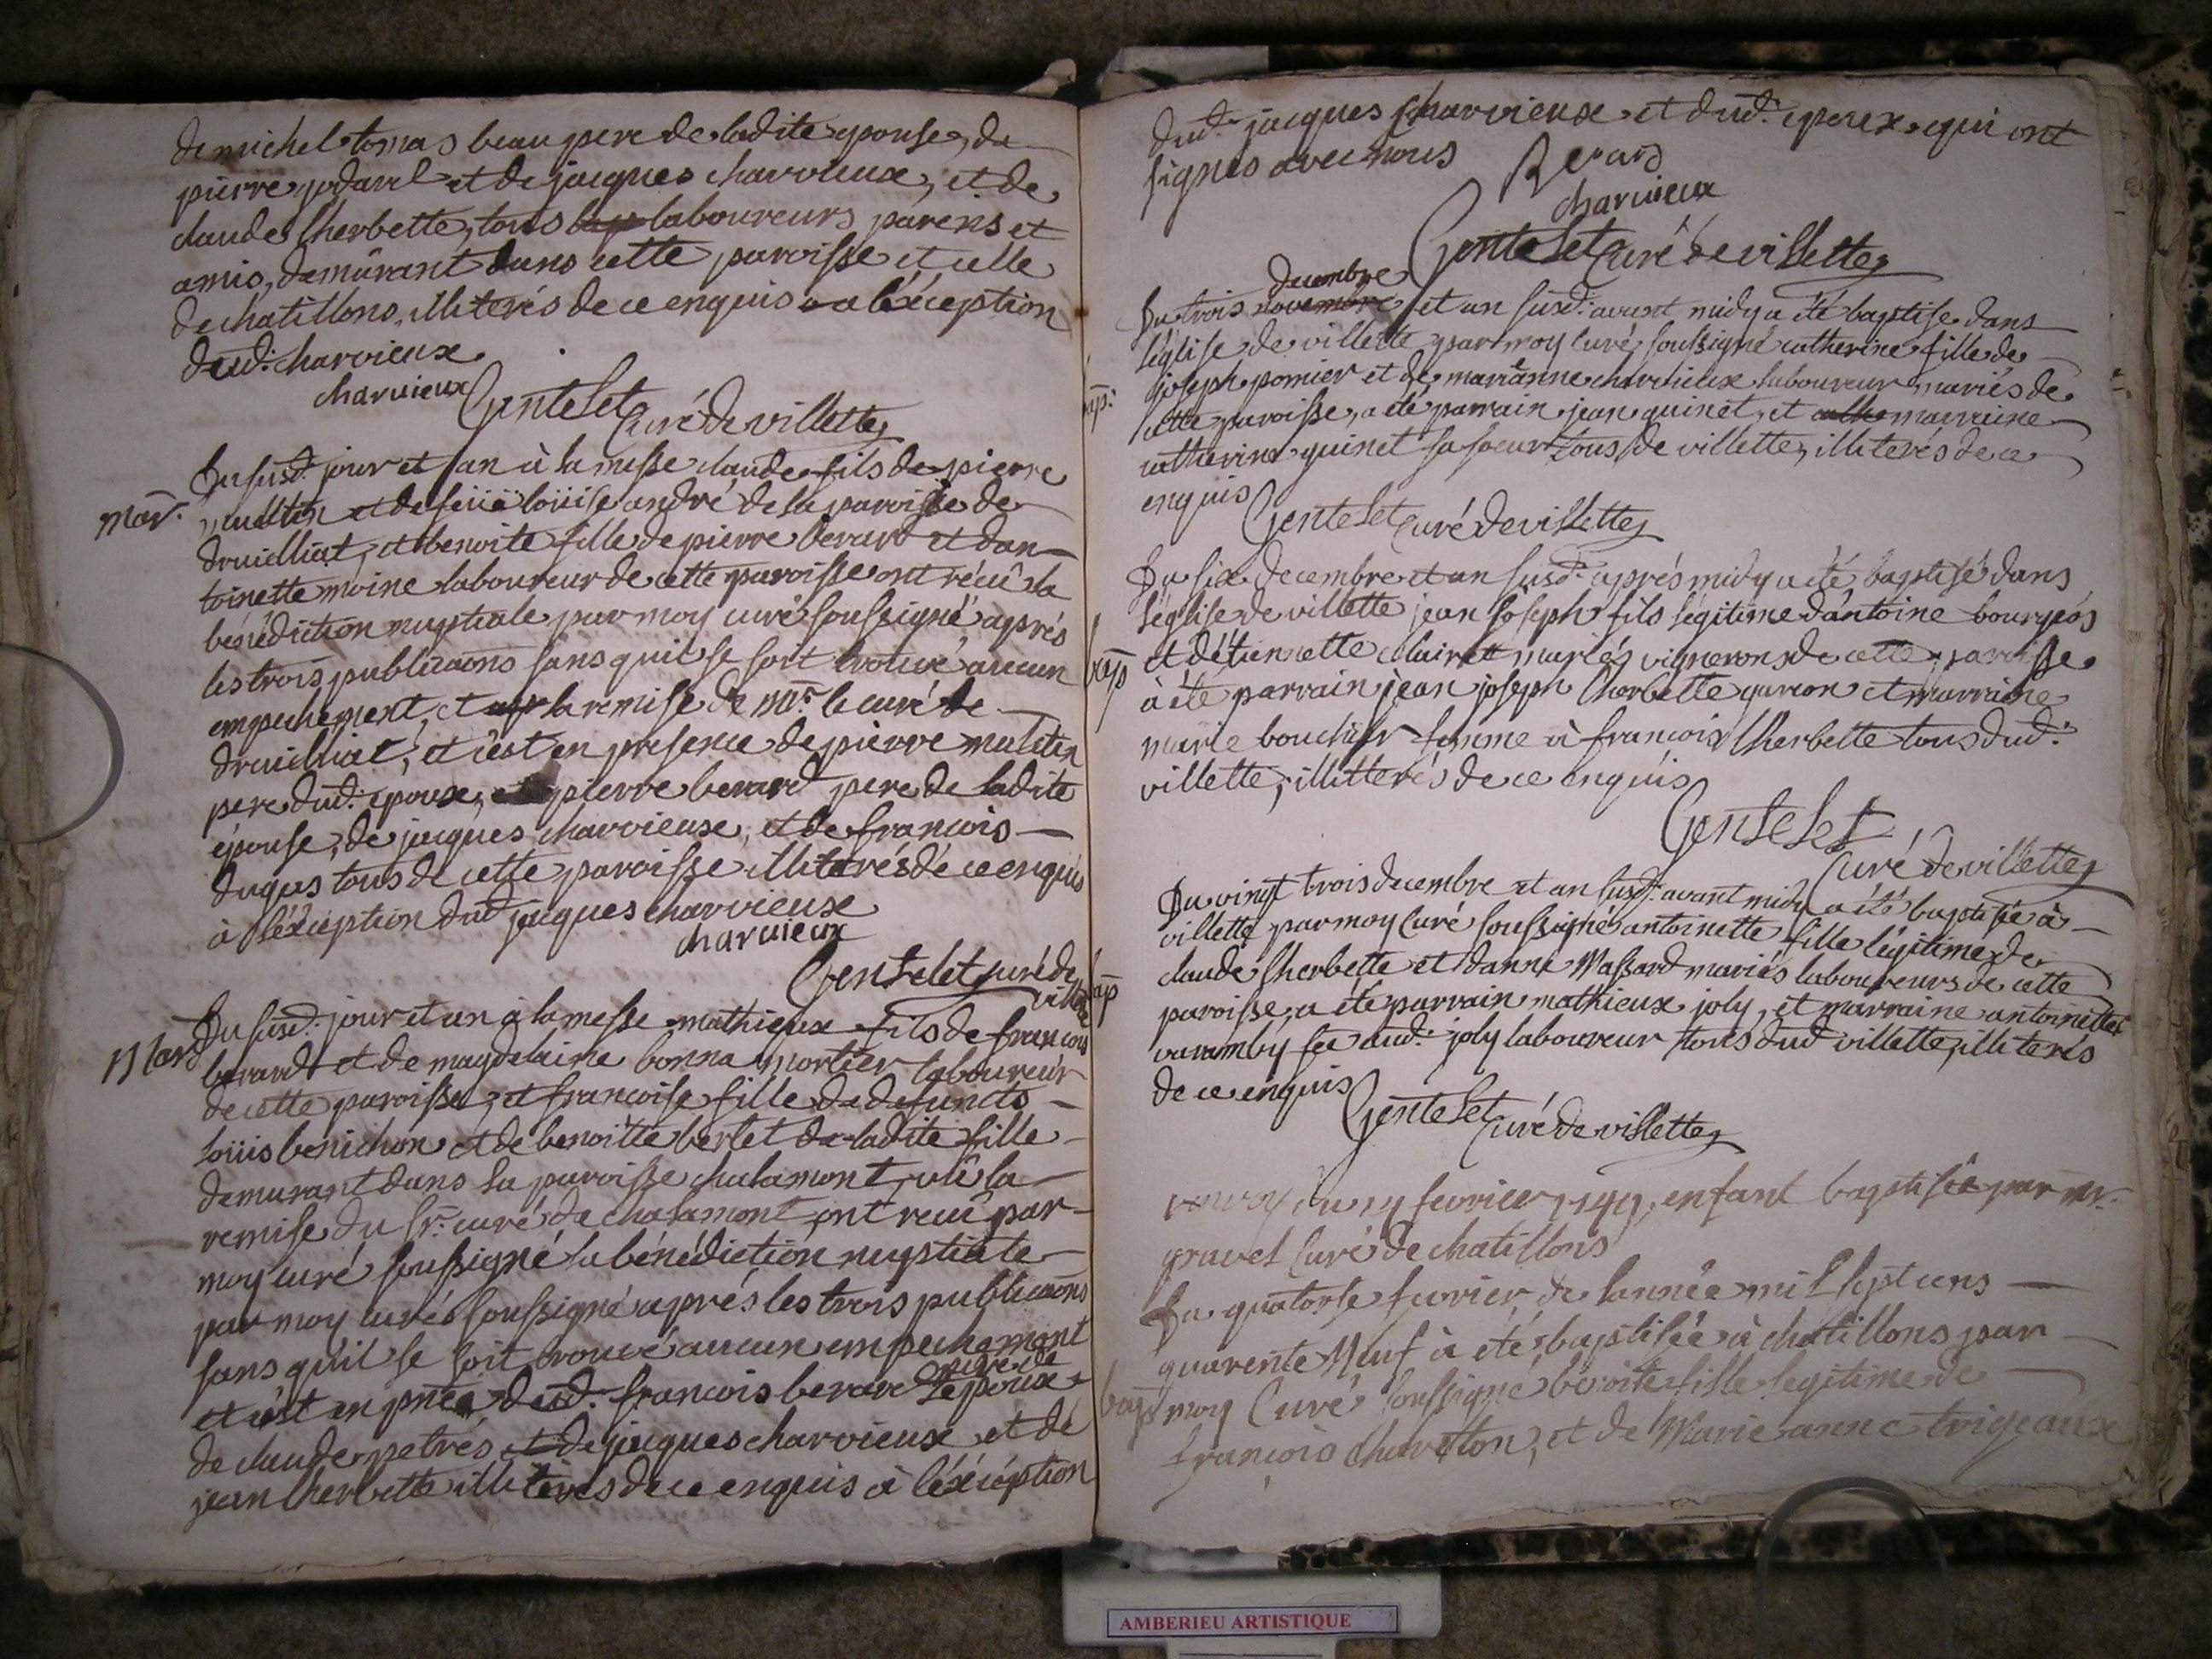 de michel tomas beau pere de ladite epouse, de
pierre godard et de jacques charvieux, et de
claude lherbette, tous laboureurs parens et
amis, demurant dans cette paroisse et celle
de chatillons, illiterés de ce enquis a léxception
dud: charvieux
charuieux
Gentelet Curé de villette
Du susd: jour et an à la messe claude fils de pierre
mar.
et de feüe loüise andré de la paroisse de
druilliat, et benoite fille de pierre berard et dan-
toinette moine laboureur de cette paroisse ont récû la
bénédiction nuptiale par moy curé soussigné aprés
les trois publicaons sans quil se soit trouvé aucun
empechement, et la remise de mr. le curé de
druilliat, et c'est en presence de pierre
pere dud: epoux, pierre berard pere de ladite
épouse, de jacques charvieux, et de francois
dugas tous de cette paroisse illiterés de ce enquis
à léxception dud jacques charvieux
charuieux
Gentelet curé de
villette
Mar
Du susd: jour et an à la messe mathieux fils de francois
berard et de magdelaine bonna mortier laboureur
de cette paroisse, et francoise fille de defuncts
loüis benichon et de benoitte berlet de ladite fille
demurant dans la paroisse chalamont, vû la
remise du sr. curé de chalamont ont recu par
moy curé soussigné la bénédiction nuptiale
par moy curé soussigné aprés les trois publicaons
sans qu'il se soit trouvé aucun empechement
pere de
et c'est en pnce dud: francois berard lepoux
de claude petres, et de jacques charvieux et de
jean lherbette illiterés de ce enquis à léxception
dud: jacques charvieux et dud: epoux qui ont
signés avec nous
Berard
charuieux
Gentelet Curé de villette
decembre
Du trois novembre et an susd: avant midy a été baptise dans
léglise de villette par moy curé soussigné catherine fille de
bap:
joseph pomier et de marianne charvieux laboureur mariés de
cette paroisse, a été parrain jean quinet, et marraine
catherine quinet sa soeur tous de villette, illiterés de ce
enquis
Gentelet Curé de villette
Du six decembre et an susd: aprés midy a été baptisé dans
léglise de villette jean joseph fils légitime d'antoine bourgeois
bap
et détiennette clairet mariés vignerons de cette paroisse
à été parrain jean joseph lherbette garcon et marraine
marie bouchier femme à francois lherbette tous dud:
villette, illitterés de ce enquis
Gentelet
Curé de villette
Du vingt trois decembre et an susd: avant midy a été baptisée à
villette par moy Curé soussigné antoinette fille légitime de
claude lherbette et danne Massard mariés laboureurs de cette
bap
paroisse, a été parrain mathieux joly, et marraine antoinette
varamby fe dud: joly laboureur tous dud villette, illiterés
de ce enquis
Gentelet Curé de villette
renvoy du fevrier 1749, enfant baptisée par mr.
gravel Curé de chatillons
Du quatorse fevrier de lannée mil sept cens
quarente Neuf à été baptisée à chatillons par
bap
moy Curé soussigné benoite fille legitime de
francois Charetton, et de Marie anne
AMBERIEU ARTISTIQUE